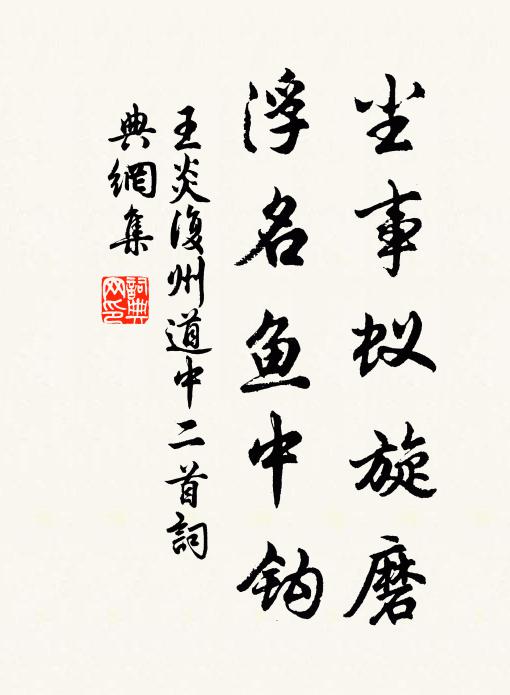 尘事蚁旋磨
浮名鱼中钩
王炎復州道中二首詞
典網集
詞典
网印